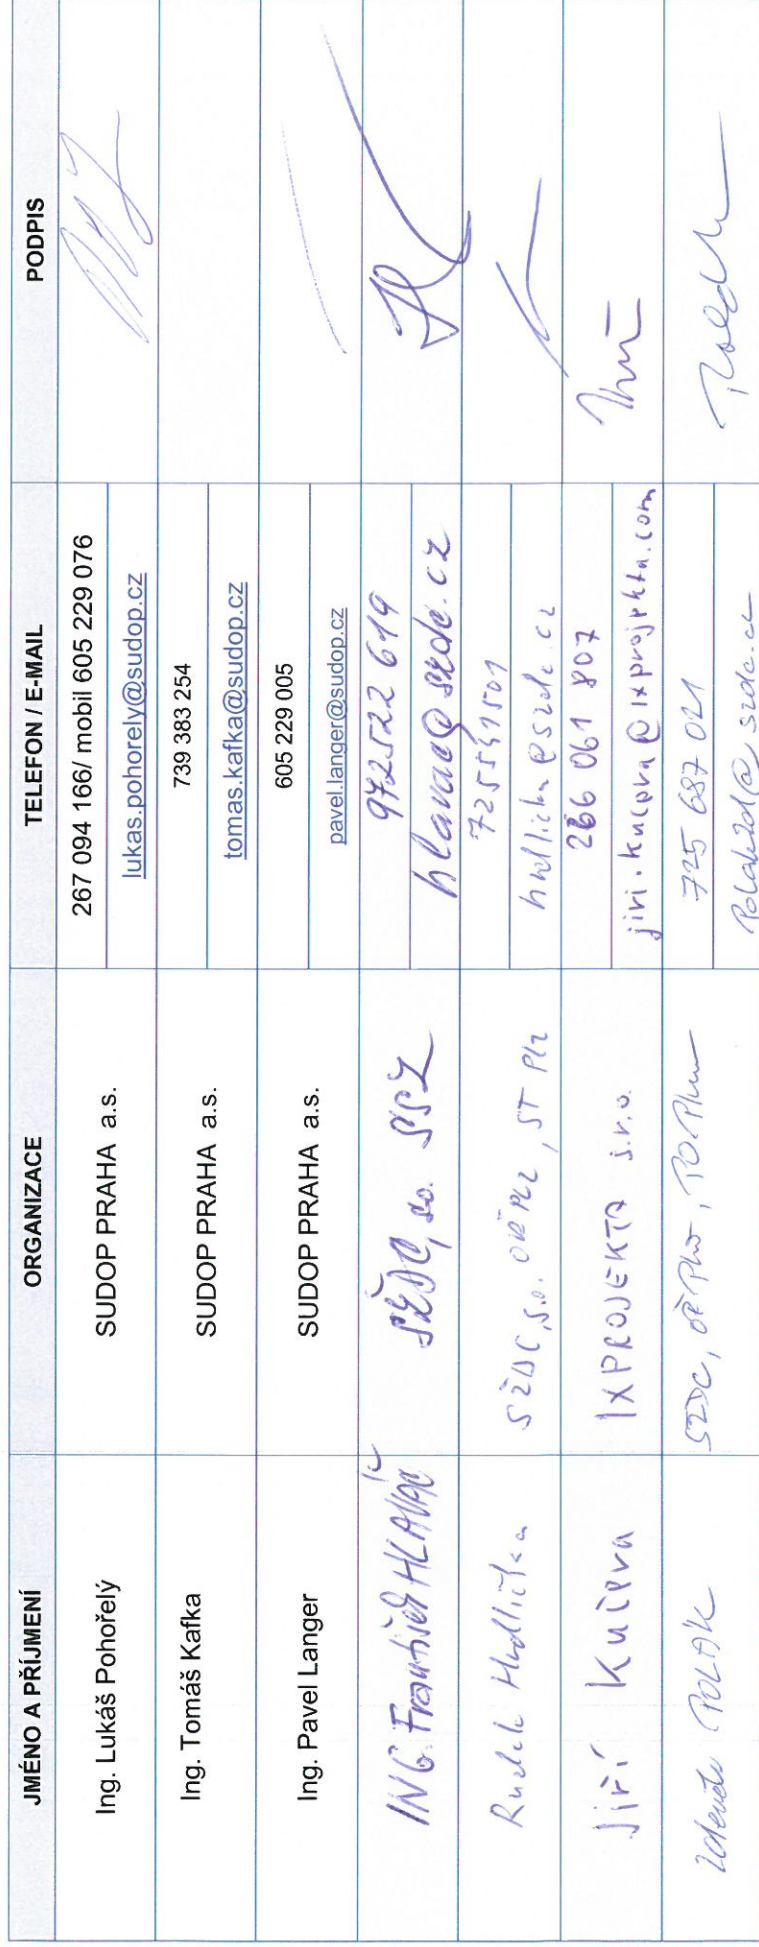 JMÉNO A PŘÍJMENÍ ORGANIZACE TELEFON / E-MAIL PODPIS
Ing. Lukáš Pohořelý SUDOP PRAHA a.s. 267 094 166/ mobil 605 229 076
lukas.pohorely@sudop.cz
Ing. Tomáš Kafka SUDOP PRAHA a.s. 739 383 254
tomas.kafka@sudop.cz
Ing. Pavel Langer SUDOP PRAHA a.s. 605 229 005
pavel.langer@sudop.cz
ING. František HLAVÁČ SŽDC, s.o. SSZ 972522 619
hlavac@szdc.cz
Hrdlička SŽDC, s.o. ST Plz 725541501
hrdlicka@szdc.cz
Jiří Kučera IXPROJEKTA s.r.o. 266 061 807
jiri.kucera@ixprojekta.com
Zdeněk POLÁK SŽDC, 725 687 021
Polakzd@szdc.cz